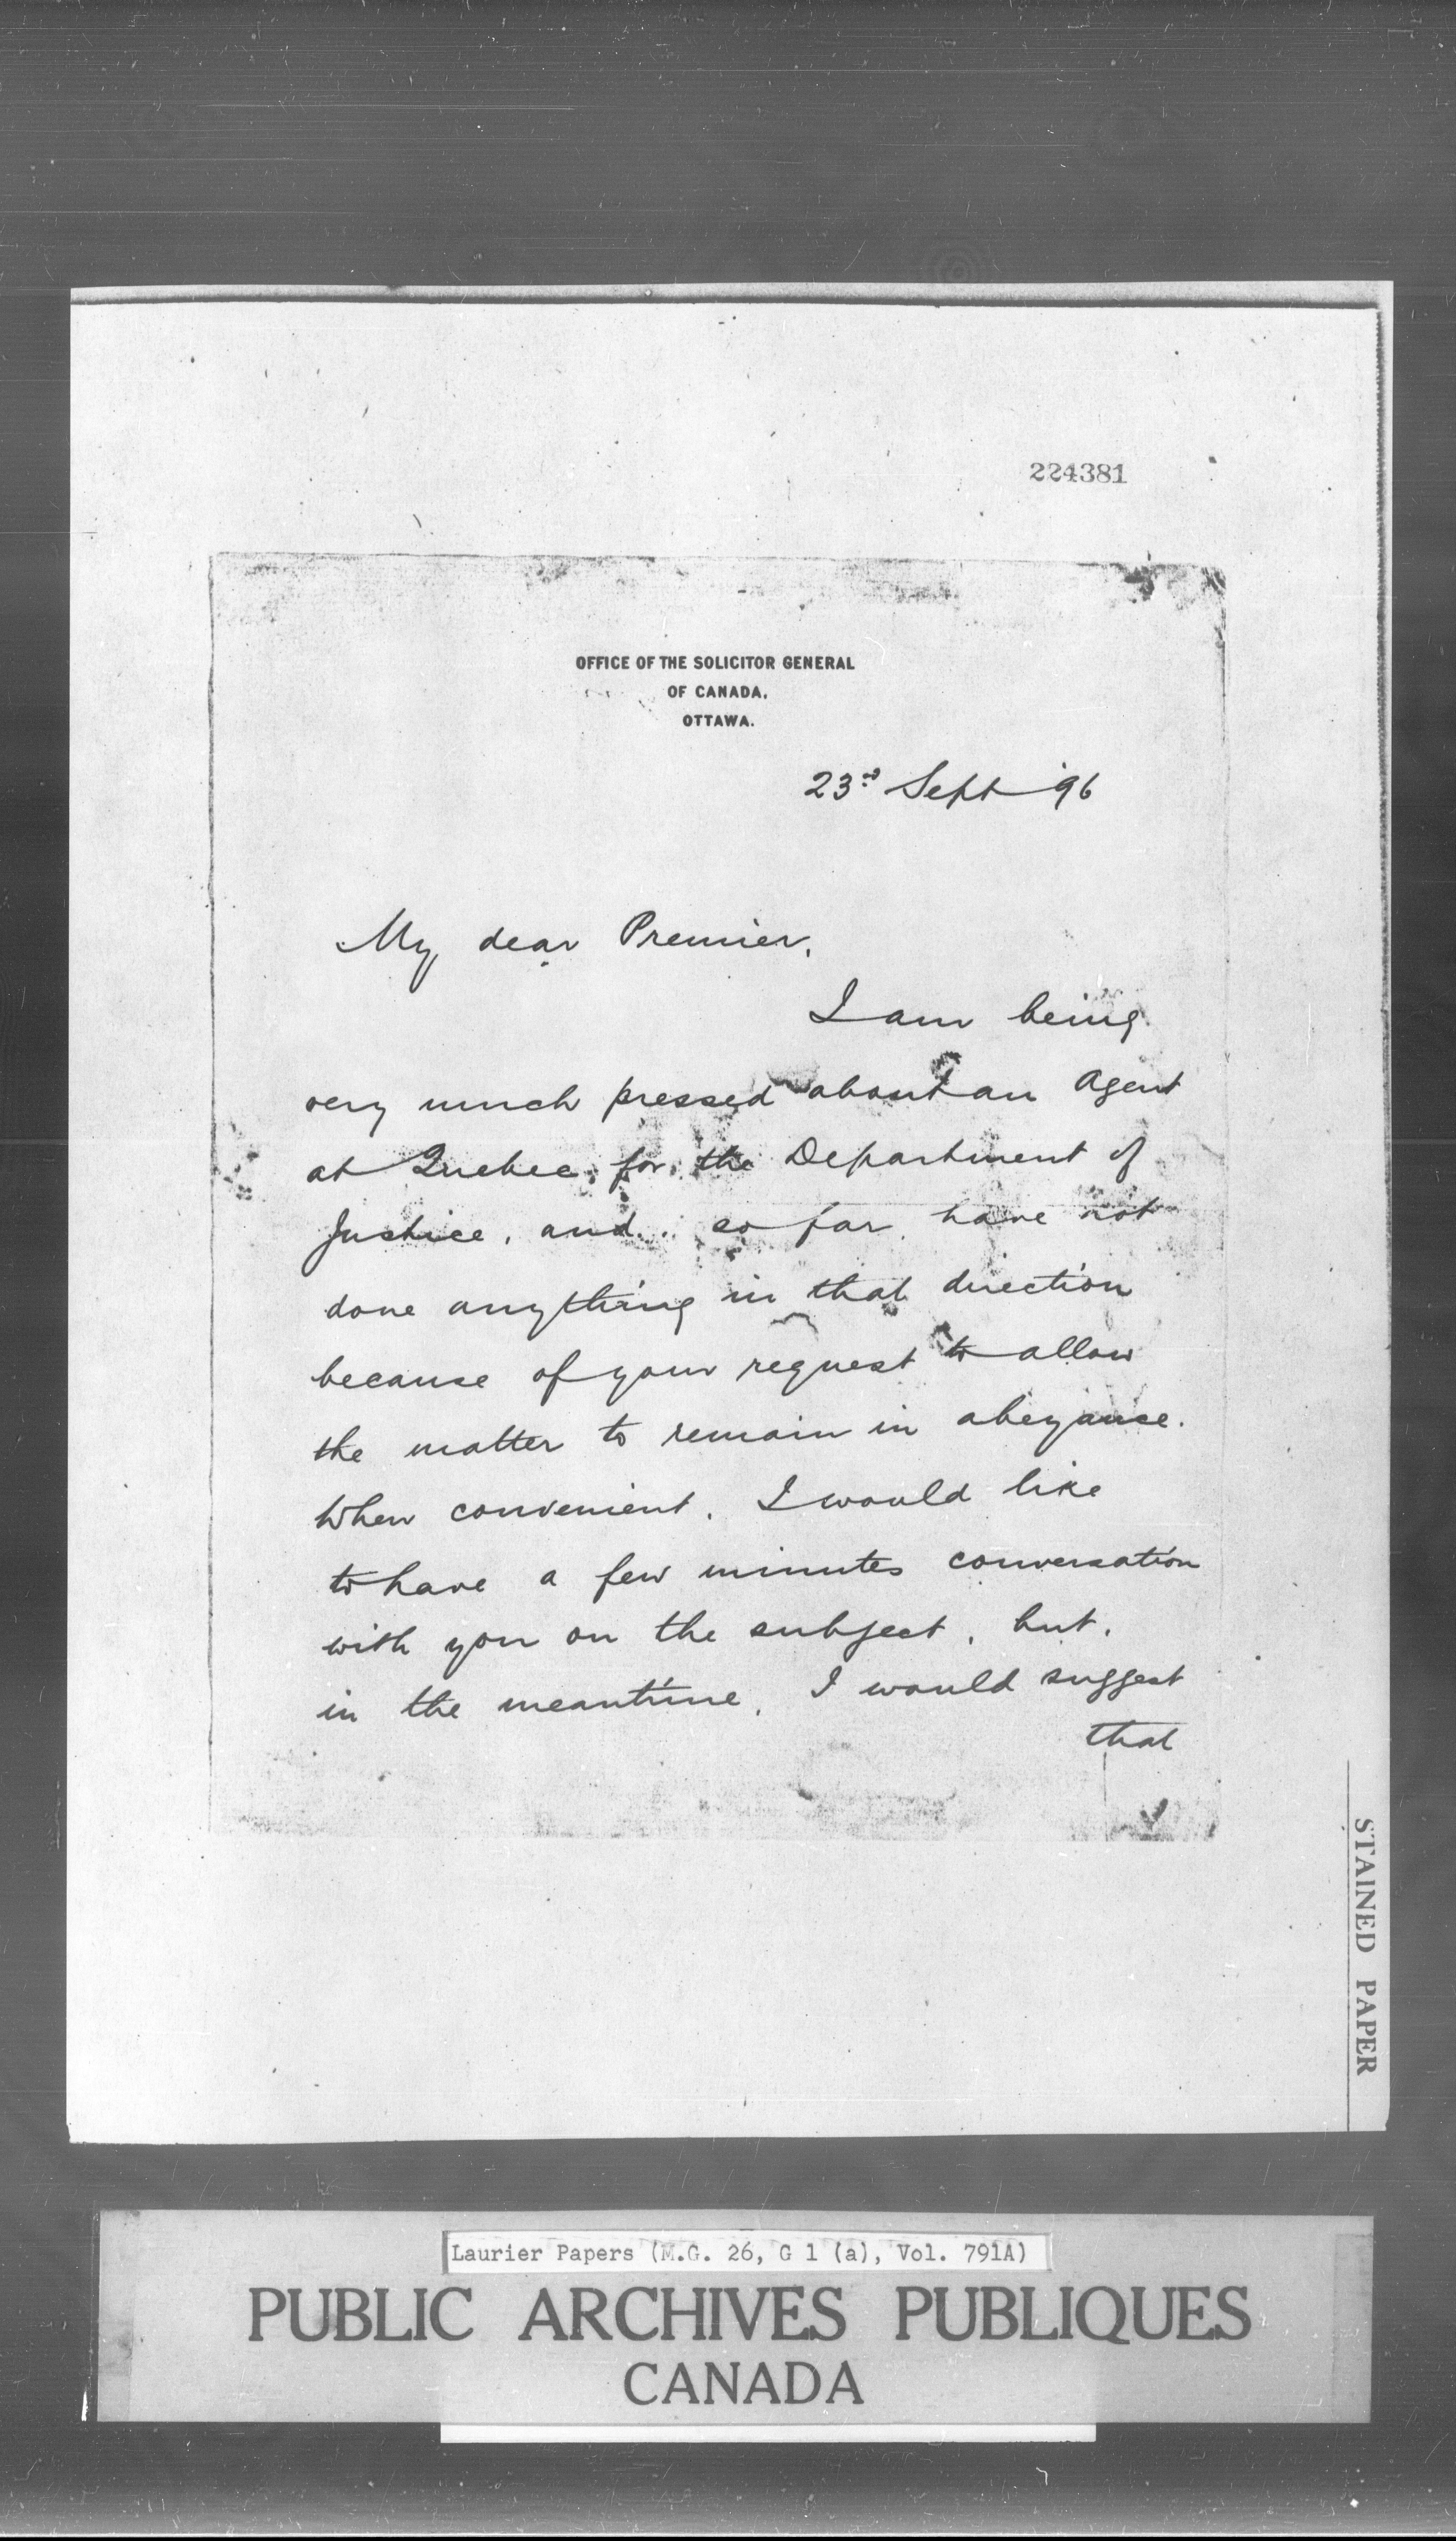 224381
OFFICE OF THE SOLICITOR GENERAL
OF CANADA.
OTTAWA.
23rd Sept '96
My dear Premier,
I am being
very much pressed about an Agent
at Quebec, for, the Department of
Justice, and so far, have not
done anything in that direction
because of your request to allow
the matter to remain in abeyance.
When convenient, I would like
to have a few minutes conversation
with you on the subject, but,
in the meantime, I would suggest
that
STAINED PAPER
Laurier Papers (M.G. 26, G 1 (a), Vol. 791A)
PUBLIC ARCHIVES PUBLIQUES
CANADA